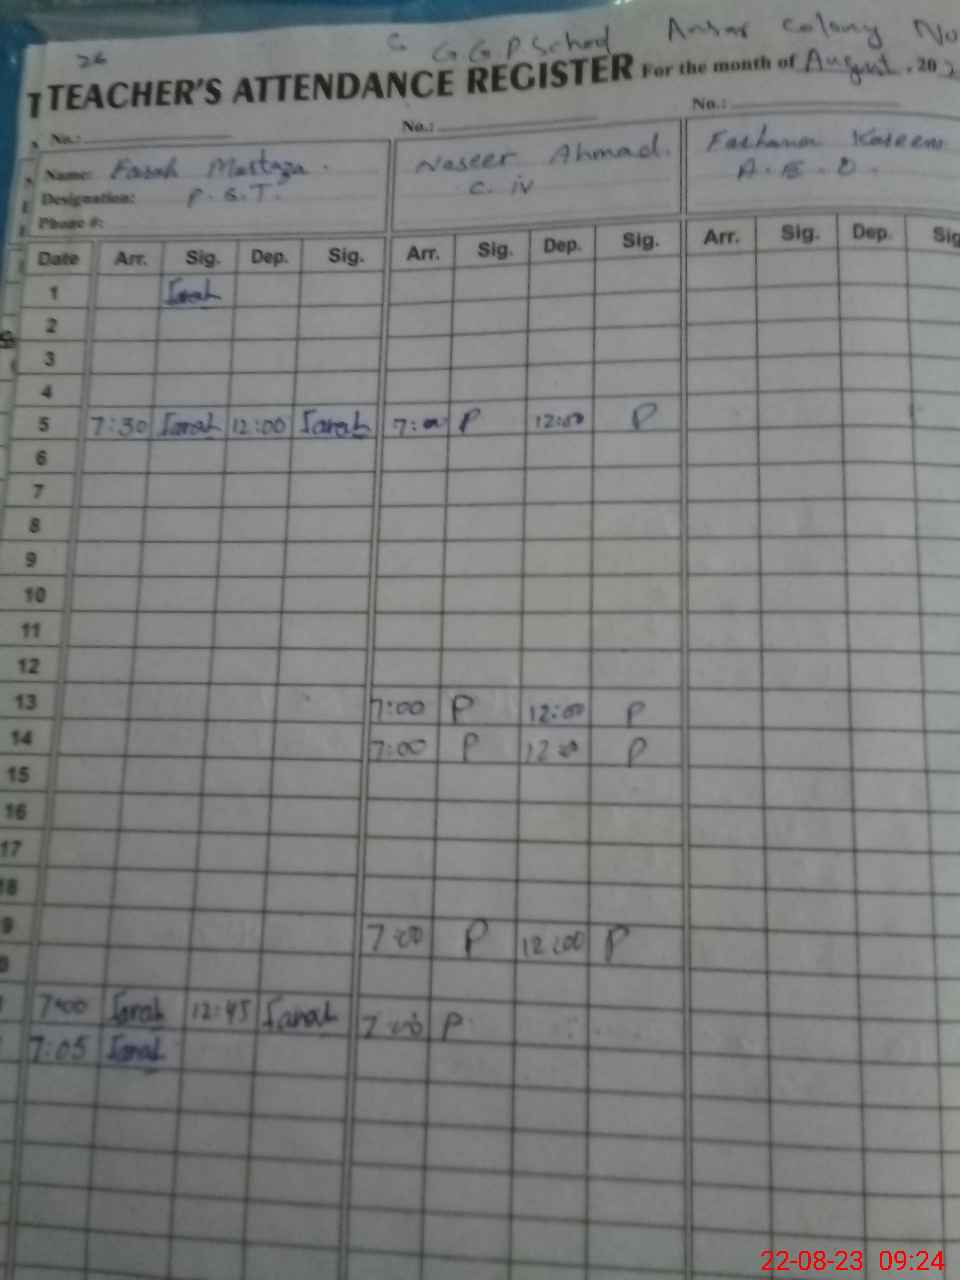 26 G G P School Ansar Colony No
TEACHER'S ATTENDANCE REGISTER For the month of August, 20
No.: No.: No.:
Name: Farah Murtaza. Naseer Ahmad. Farhana Kareem
Designation: P.S.T. C. iv A.E.O.
Phone #:
Date Arr. Sig. Dep. Sig. Arr. Sig. Dep. Sig. Arr. Sig. Dep. Sig
1 Farah
2
3
4
5 7:30 Farah 12:00 Farah 7:00 P 12:00 P
6
7
8
9
10
11
12
13 7:00 P 12:00 P
14 7:00 P 12:00 P
15
16
17
18
9 7:00 P 12:00 P
0
7:00 Farah 12:45 Farah 7:00 P
7:05 Farah
22-08-23 09:24